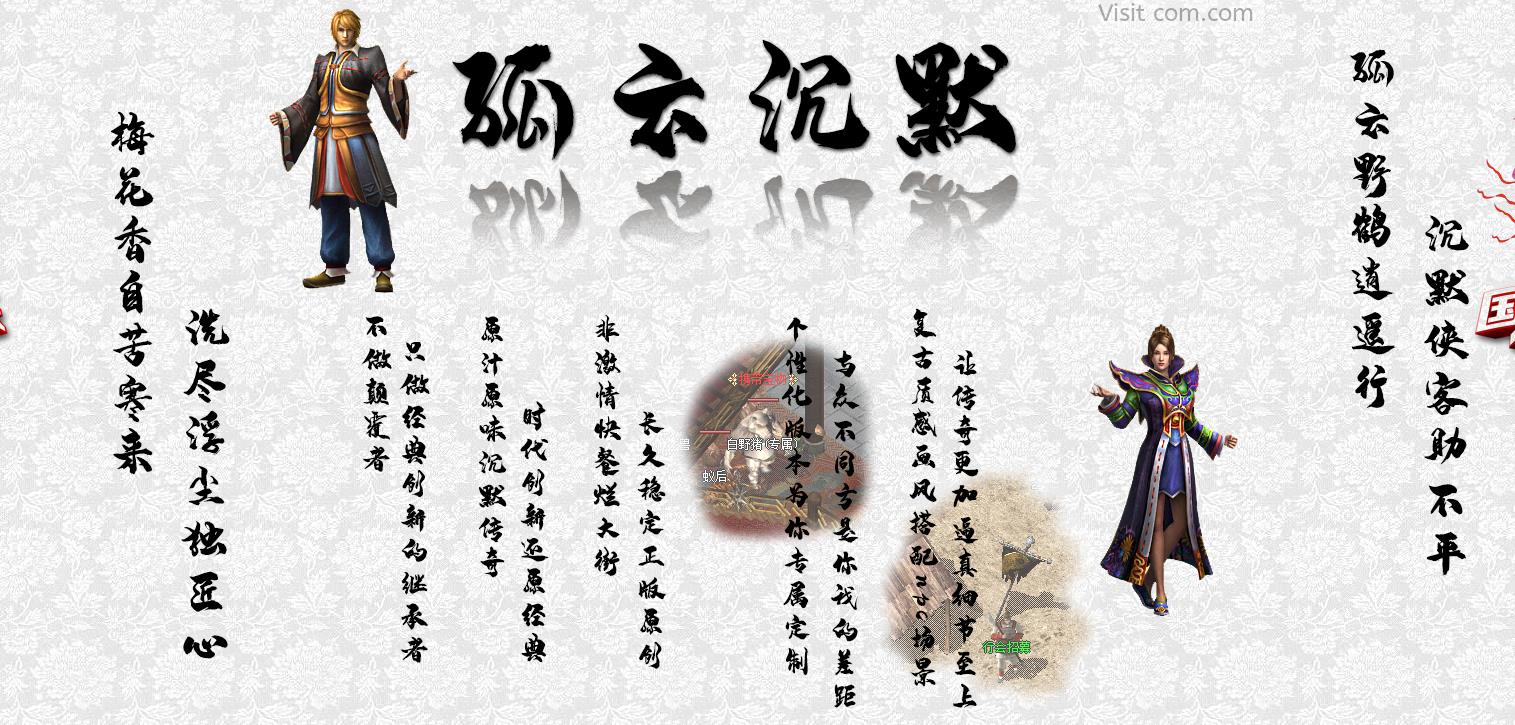 Visit com.com
孤云沉默
梅花香自苦寒来
洗尽浮尘独匠心
不做颠覆者
只做经典创新的继承者
原汁原味沉默传奇
时代创新还原经典
非激情快餐烂大街
长久稳定正版原创
个性化版本为你专属定制
与众不同方是你我的差距
复古质感画风搭配npc场景
让传奇更加逼真细节至上
孤云野鹤逍遥行
沉默侠客助不平
携带宝物
白野猪(专属)
蚁后
行会招募
国